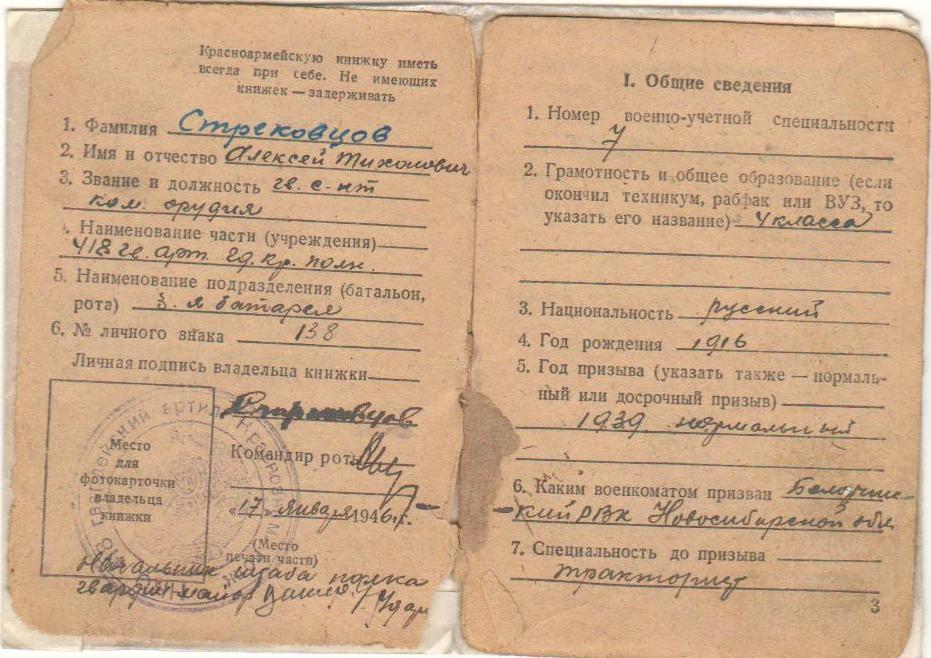 Красноармейскую книжку иметь
всегда при себе. Не имеющих
книжек — задерживать
1. Фамилия Стрековцов
2. Имя и отчество Алексей Тихонович
3. Звание и должность гв. с-нт
ком. орудия
4. Наименование части (учреждения)
418 гв. арт. кр. полк.
5. Наименование подразделения (батальон,
рота) 3-я батарея
6. № личного знака 138
Личная подпись владельца книжки
Стрековцов
Место
для
фотокарточки
владельца
книжки
Командир роты
„17" Января 1946 г.
(Место
печати части)
Начальник штаба полка
гвардии майор
I. Общие сведения
1. Номер военно-учетной специальности
7
2. Грамотность и общее образование (если
окончил техникум, рабфак или ВУЗ, то
указать его название) 4 класса
3. Национальность русский
4. Год рождения 1916
5. Год призыва (указать также — нормаль-
ный или досрочный призыв)
1939. нормальный
6. Каким военкоматом призван
РВК Новосибирской обл
7. Специальность до призыва
тракторист
3